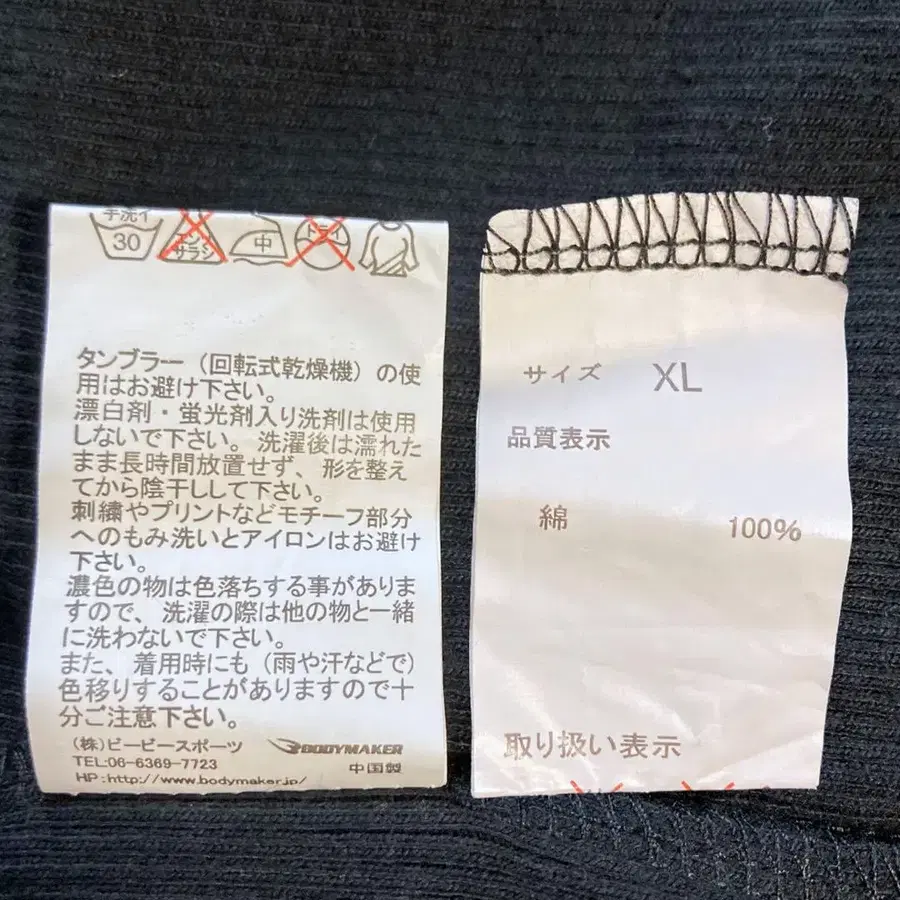 手洗イ
30
エンソ
サラシ
中
ドライ
タンブラー（回転式乾燥機）の使
用はお避け下さい。
漂白剤・蛍光剤入り洗剤は使用
しないで下さい。洗濯後は濡れた
まま長時間放置せず、形を整え
てから陰干しして下さい。
刺繍やプリントなどモチーフ部分
へのもみ洗いとアイロンはお避け
下さい。
濃色の物は色落ちする事がありま
すので、洗濯の際は他の物と一緒
に洗わないで下さい。
また、着用時にも（雨や汗などで）
色移りすることがありますので十
分ご注意下さい。
(株)ビービースポーツ
BODYMAKER
TEL:06-6369-7723
中国製
HP:http://www.bodymaker.jp/
サイズ XL
品質表示
綿 100%
取り扱い表示